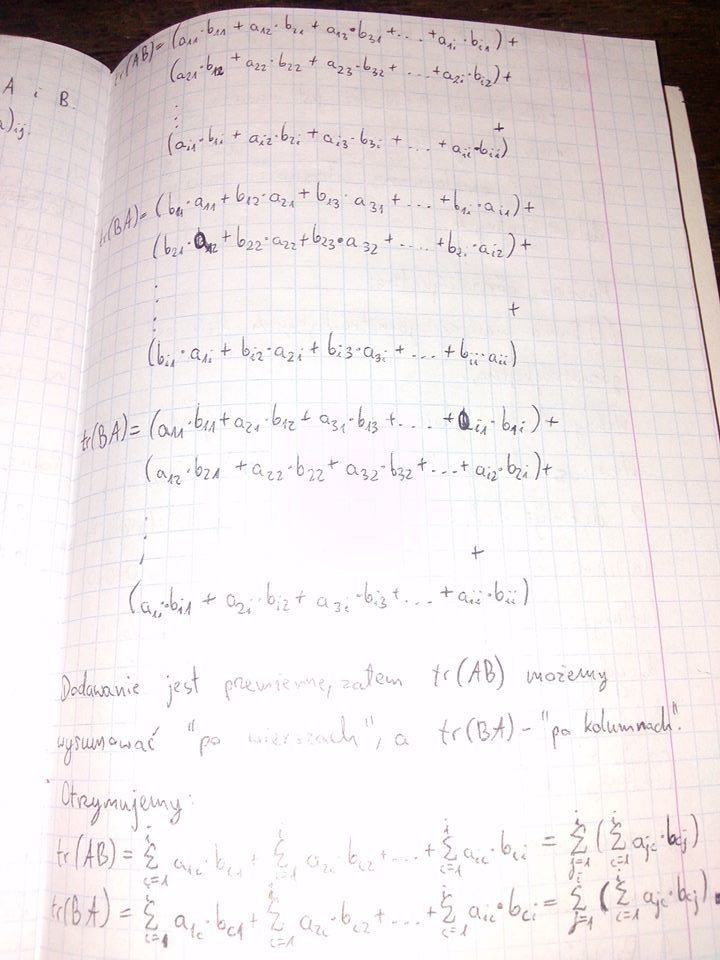 A i B.
)ij.
tr(AB)= (a₁₁·b₁₁ + a₁₂·b₂₁ + a₁₃·b₃₁ + ... + a₁ᵢ·bᵢ₁) +
(a₂₁·b₁₂ + a₂₂·b₂₂ + a₂₃·b₃₂ + ... + a₂ᵢ·bᵢ₂) +
⋮ +
(aᵢ₁·b₁ᵢ + aᵢ₂·b₂ᵢ + aᵢ₃·b₃ᵢ + ... + aᵢᵢ·bᵢᵢ)
tr(BA)= (b₁₁·a₁₁ + b₁₂·a₂₁ + b₁₃·a₃₁ + ... + b₁ᵢ·aᵢ₁) +
(b₂₁·a₁₂ + b₂₂·a₂₂ + b₂₃·a₃₂ + ... + b₂ᵢ·aᵢ₂) +
⋮ +
(bᵢ₁·a₁ᵢ + bᵢ₂·a₂ᵢ + bᵢ₃·a₃ᵢ + ... + bᵢᵢ·aᵢᵢ)
tr(BA)= (a₁₁·b₁₁ + a₂₁·b₁₂ + a₃₁·b₁₃ + ... + aᵢ₁·b₁ᵢ) +
(a₁₂·b₂₁ + a₂₂·b₂₂ + a₃₂·b₃₂ + ... + aᵢ₂·b₂ᵢ) +
⋮ +
(a₁ᵢ·bᵢ₁ + a₂ᵢ·bᵢ₂ + a₃ᵢ·bᵢ₃ + ... + aᵢᵢ·bᵢᵢ)
Dodawanie jest przemienne, zatem tr(AB) możemy
wysumować "po wierszach", a tr(BA) - "po kolumnach".
Otrzymujemy:
tr(AB) = ∑ᵢ₌₁ⁱ a₁c·bc₁ + ∑ᵢ₌₁ⁱ a₂c·bc₂ + ... + ∑c₌₁ⁱ aᵢc·bcᵢ = ∑ⱼ₌₁ⁱ (∑c₌₁ⁱ aⱼc·bcⱼ)
tr(BA) = ∑c₌₁ⁱ a₁c·bc₁ + ∑c₌₁ⁱ a₂c·bc₂ + ... + ∑c₌₁ⁱ aᵢc·bcᵢ = ∑ⱼ₌₁ⁱ (∑c₌₁ⁱ aⱼc·bcⱼ).